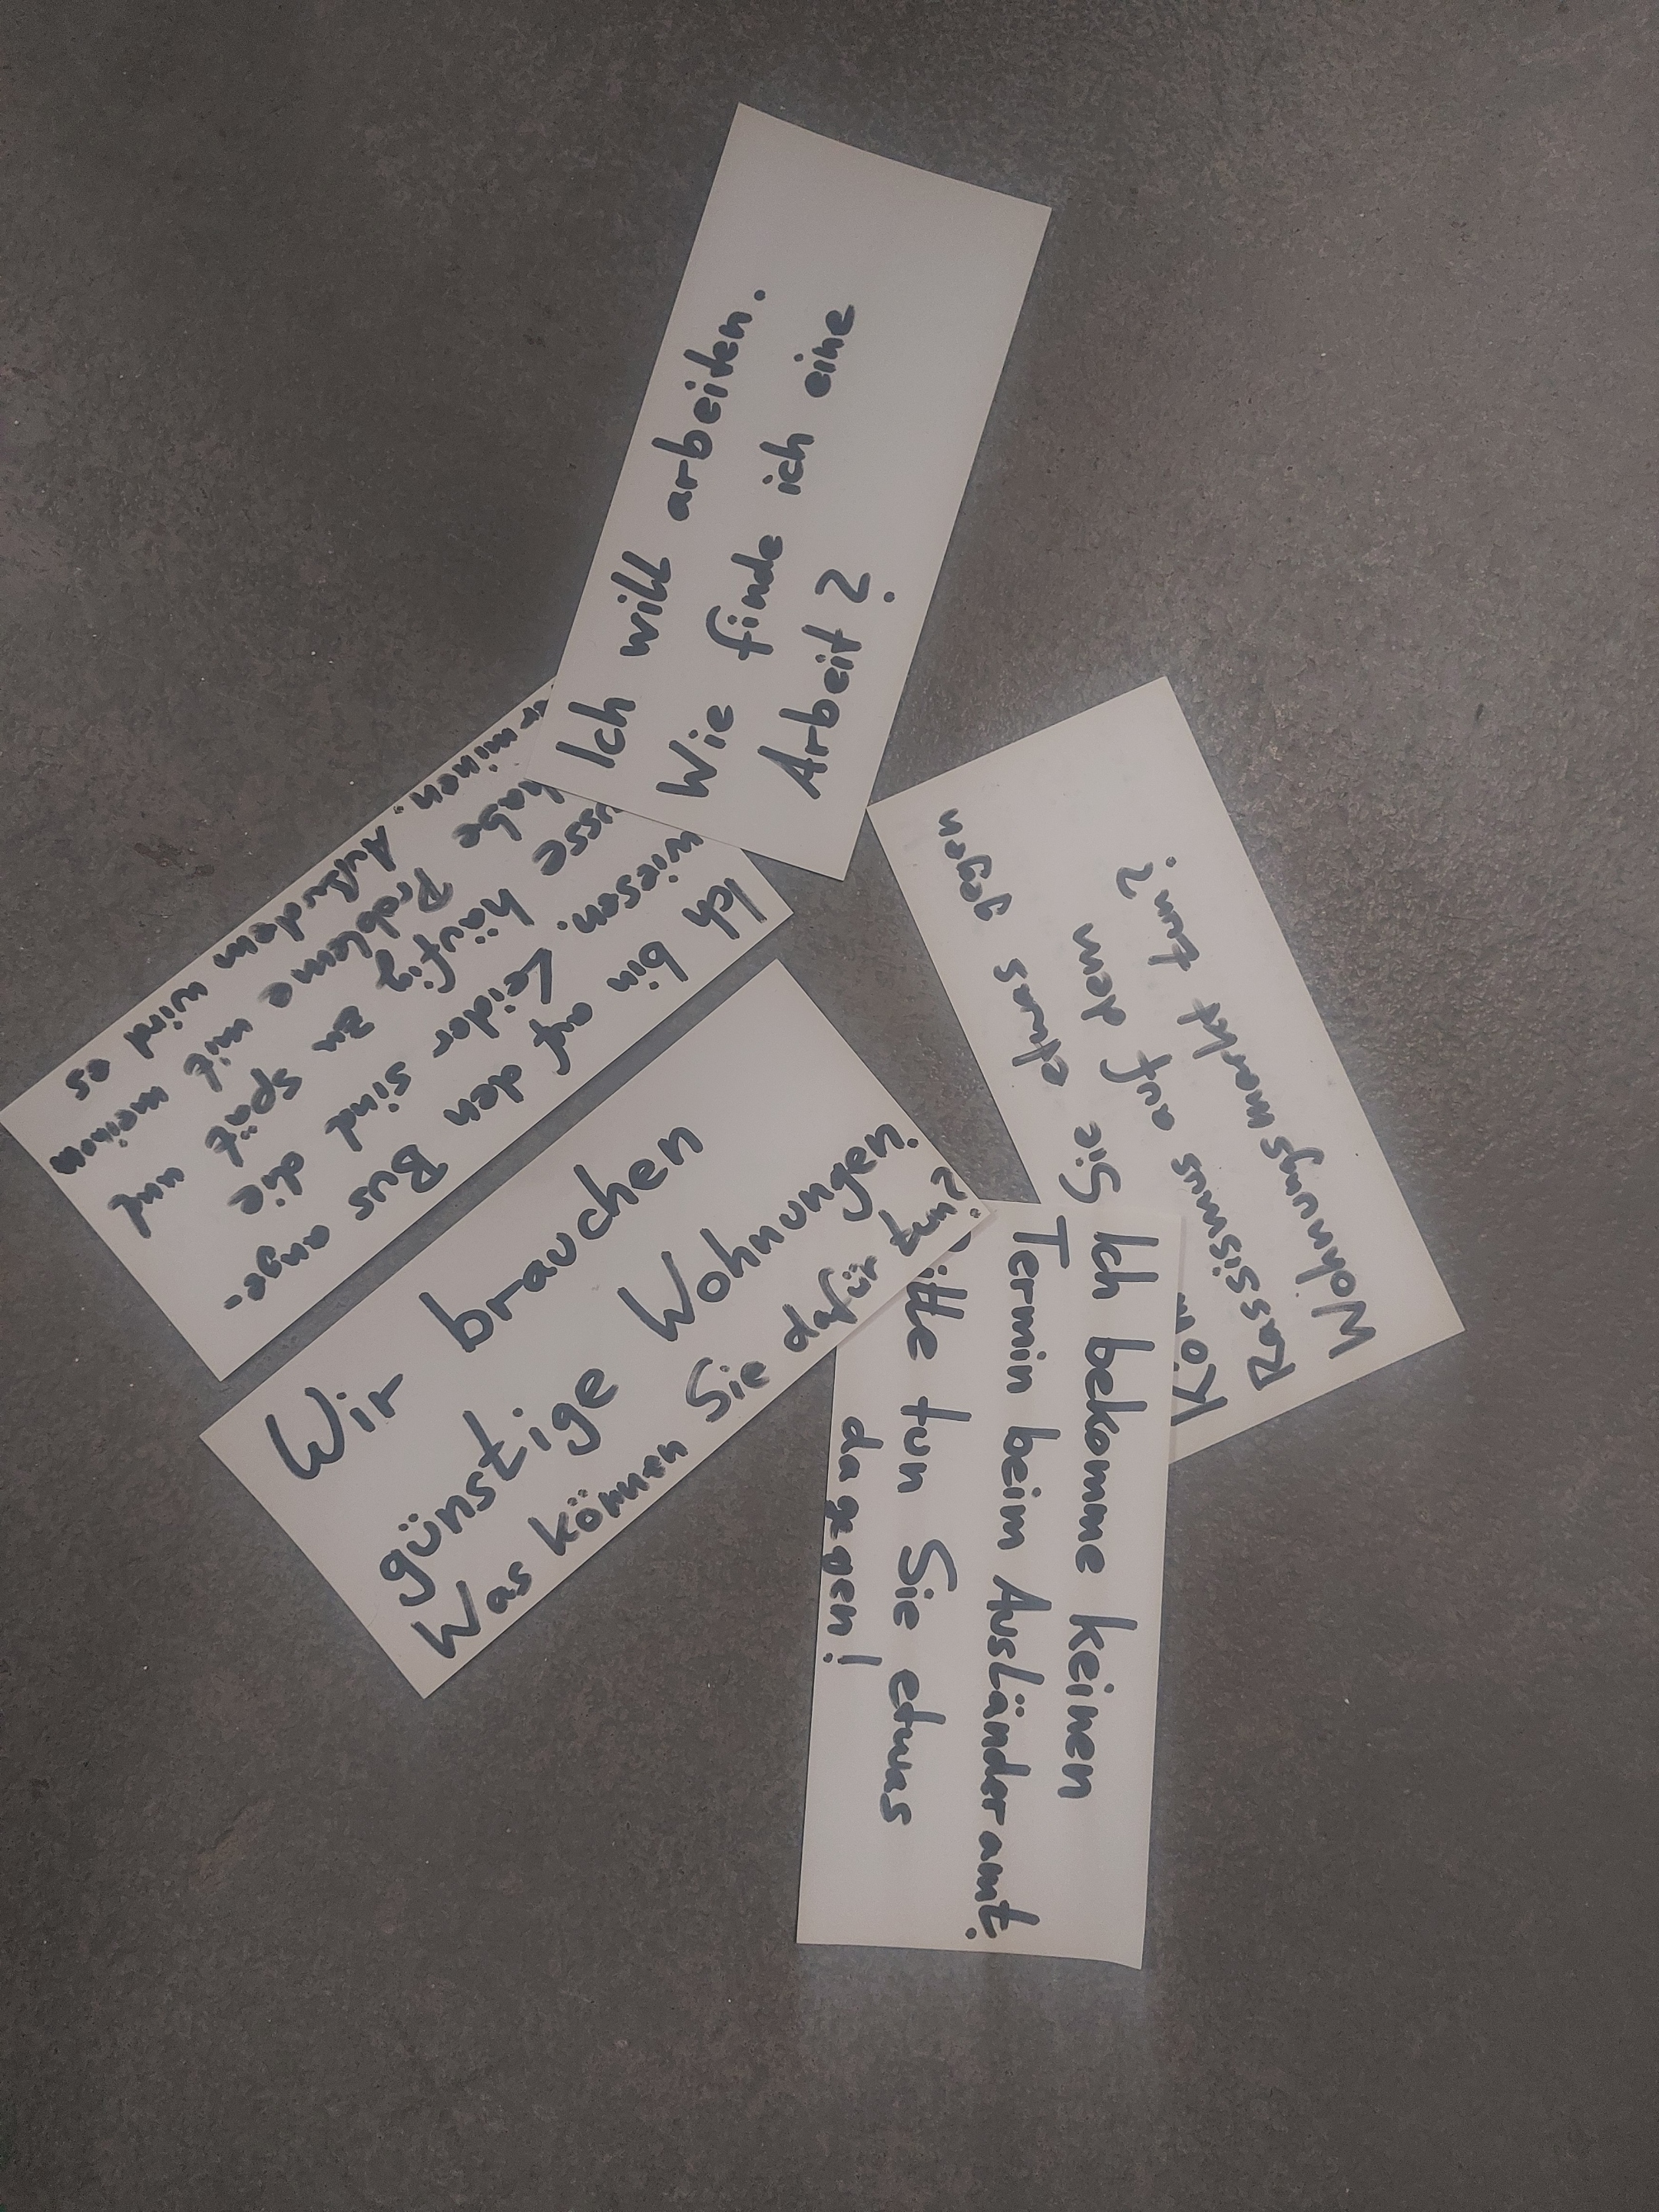 Ich will arbeiten.
Wie finde ich eine
Arbeit?
Ich bin auf den Bus ange-
wiesen. Leider sind die
usse häufig zu spät und
habe Probleme mit meinem
minen. Außerdem wird es
Wir brauchen
günstige Wohnungen.
Was können Sie dafür tun?
Ich bekomme keinen
Termin beim Ausländeramt.
itte tun Sie etwas
dagegen!
Kön Sie etwas gegen
Rassismus auf dem
Wohnungsmarkt tun?